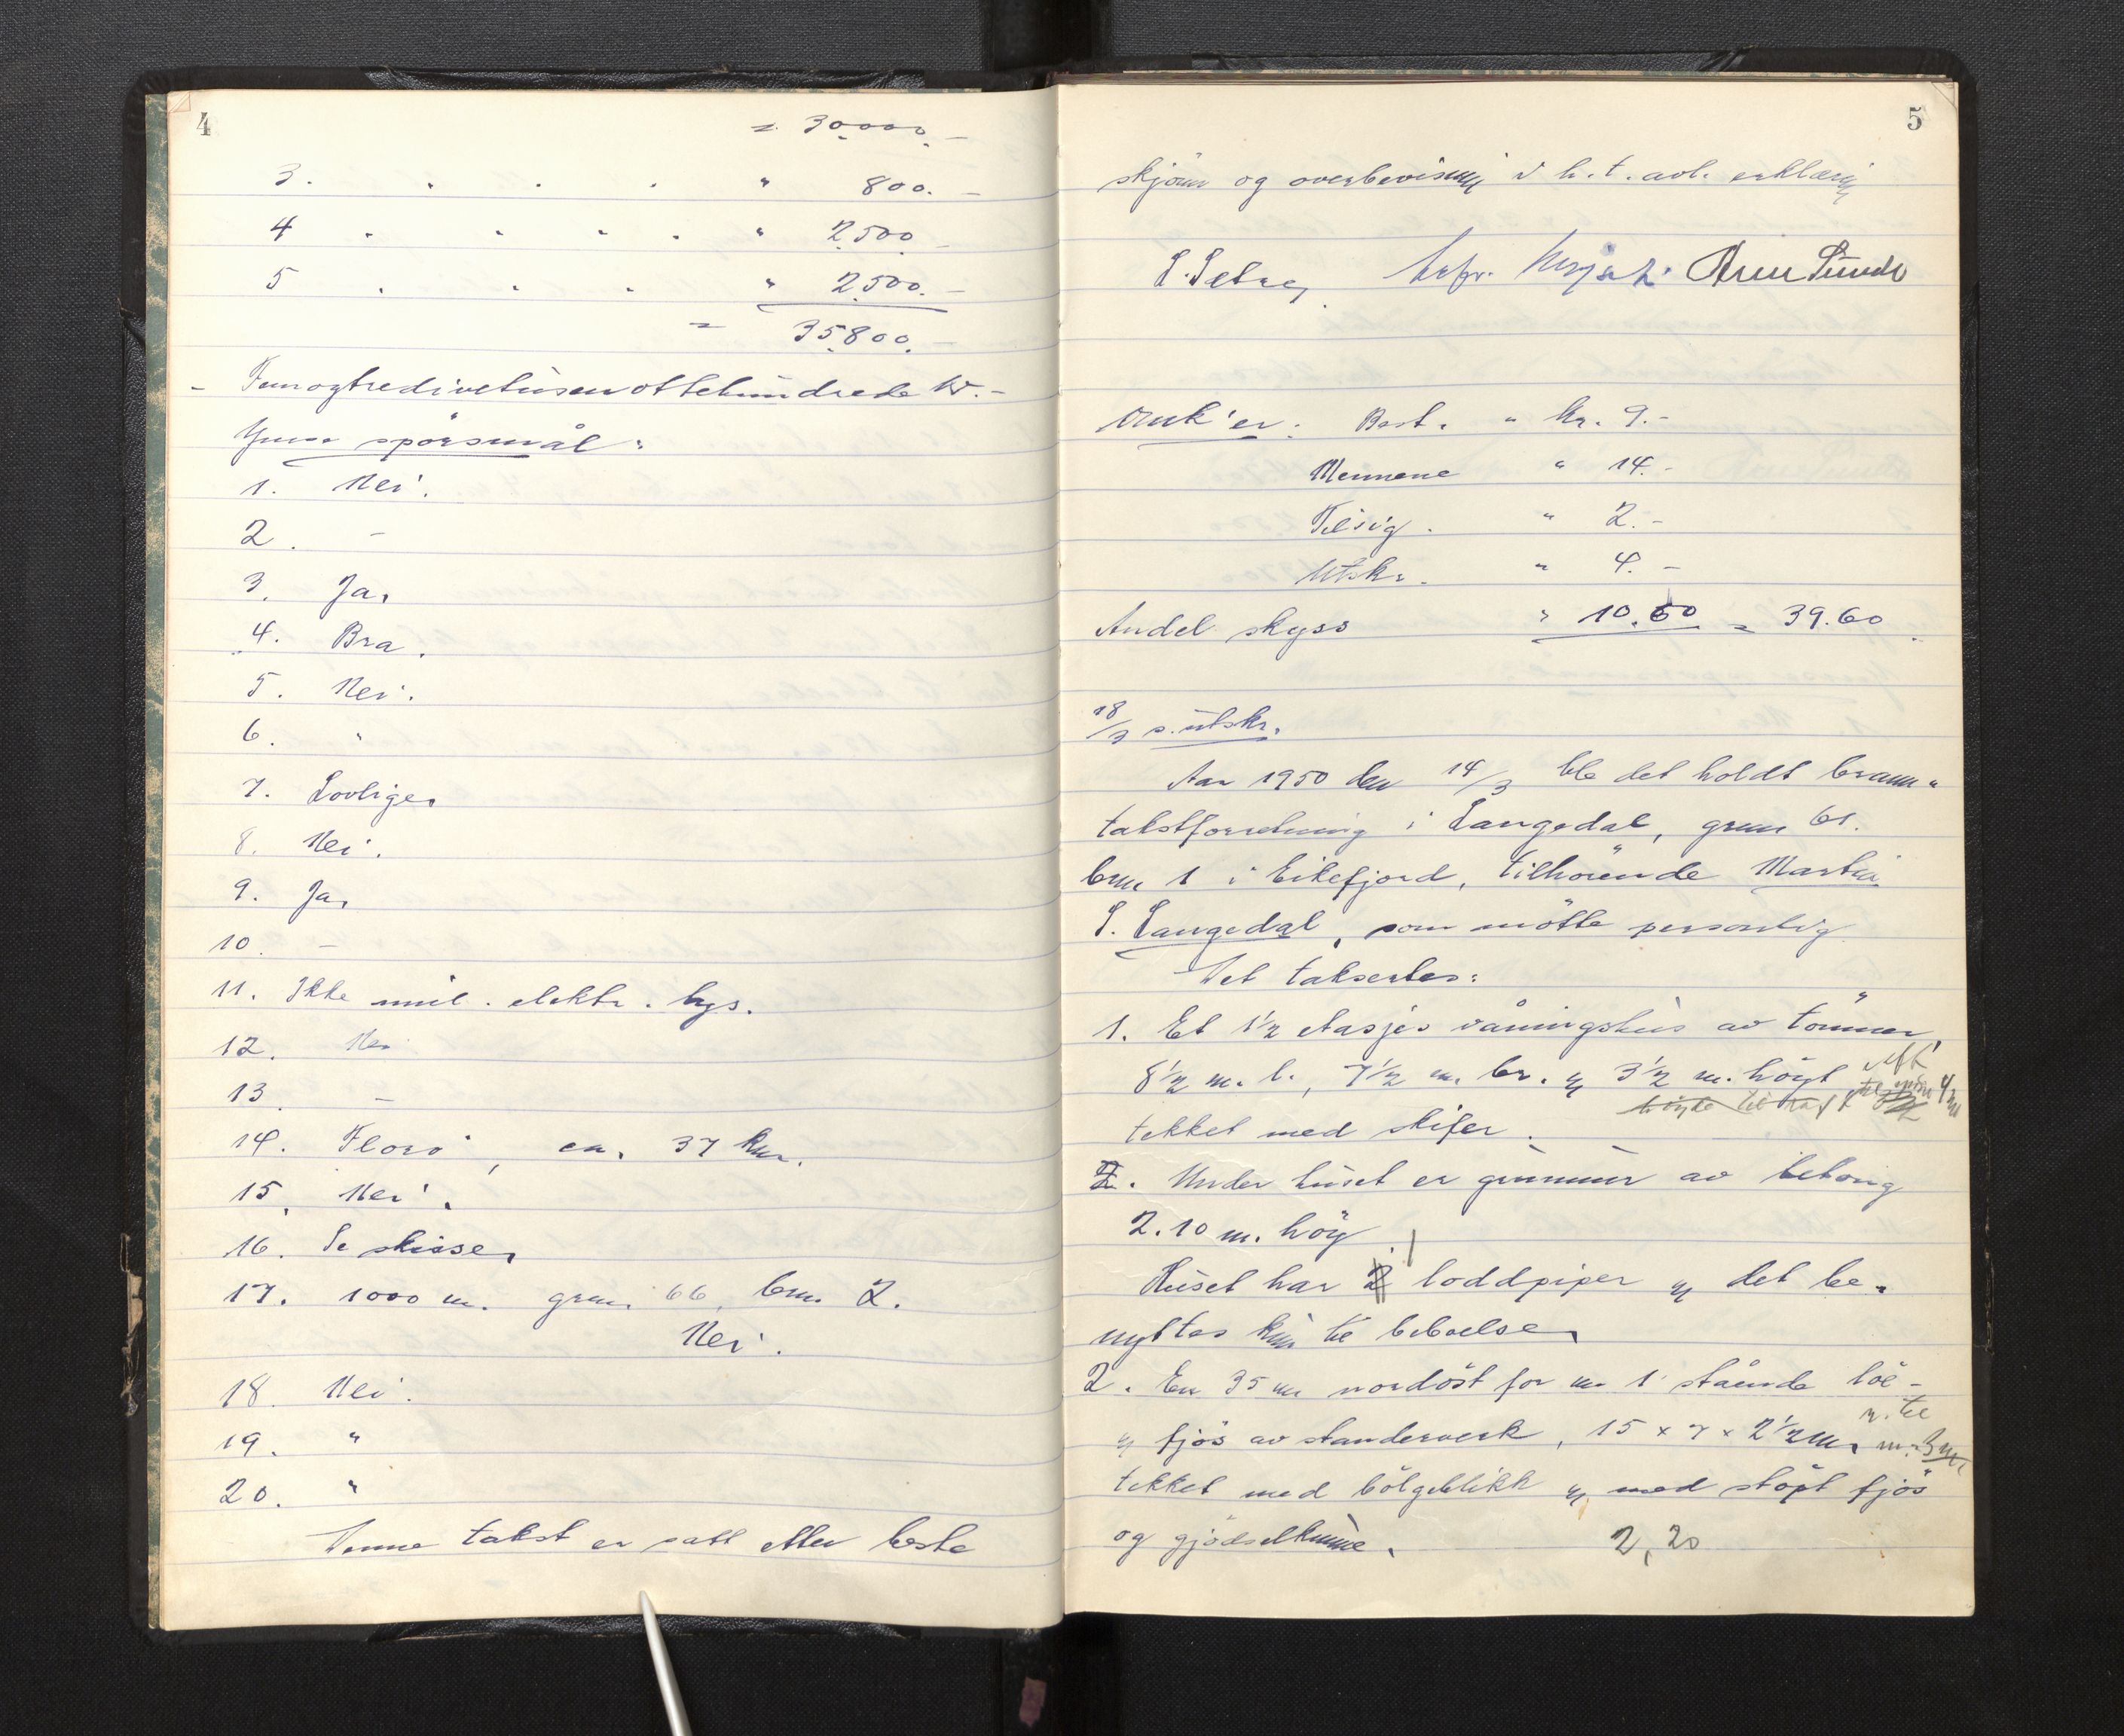 4
= 30.000.-
3. " " " " 800.-
4 " " " " " 2.500.-
5 " " " " 2.500.-
= 35.800.-
- Femogtredivetusenottehundrede kr.-
spørsmål:
1. Nei.
2. -
3. Ja.
4. Bra.
5. Nei.
6. "
7. Lovlige.
8. Nei.
9. Ja.
10. -
11. Ikke inst. elektr. lys.
12. Nei
13. -
14. Florö, ca. 37 km.
15. Nei.
16. Se skisse.
17. 1000 m. gnr. 66, bnr. 2.
Nei.
18. Nei.
19. "
20. "
Denne takst er satt etter beste
5
skjönn og overbevisning i h.t. avl. erklæring
Omk'er: Best. " kr. 9.-
Mennene " 14.-
Tilsig. " 2.-
Utskr. " 4.-
Andel skyss " 10.60 = 39.60.
18/3 s. utskr.
Aar 1950 den 14/3 ble det holdt brann-
takstforretning i Langedal, gnr. 61.
bnr 1 i Eikefjord, tilhörende Martin
S. Langedal, som mötte personlig
Det taksertes:
1. Et 1½ etasjes våningshus av tömmer,
8½ m. l., 7½ m. br. og 3½ m. høgt
tekket med skifer.
2. Under huset er grunnmur av betong
2.10 m. höy.
1
Huset har 2 loddpiper og det be-
nyttes kun til beboelse.
2. En 35 m nordöst for nr 1 stående löe-
og fjös av standerverk, 15 x 7 x 2½ m. 3 m
tekket med bölgeblikk og med stöpt fjös
og gjödselkumme. 2,20